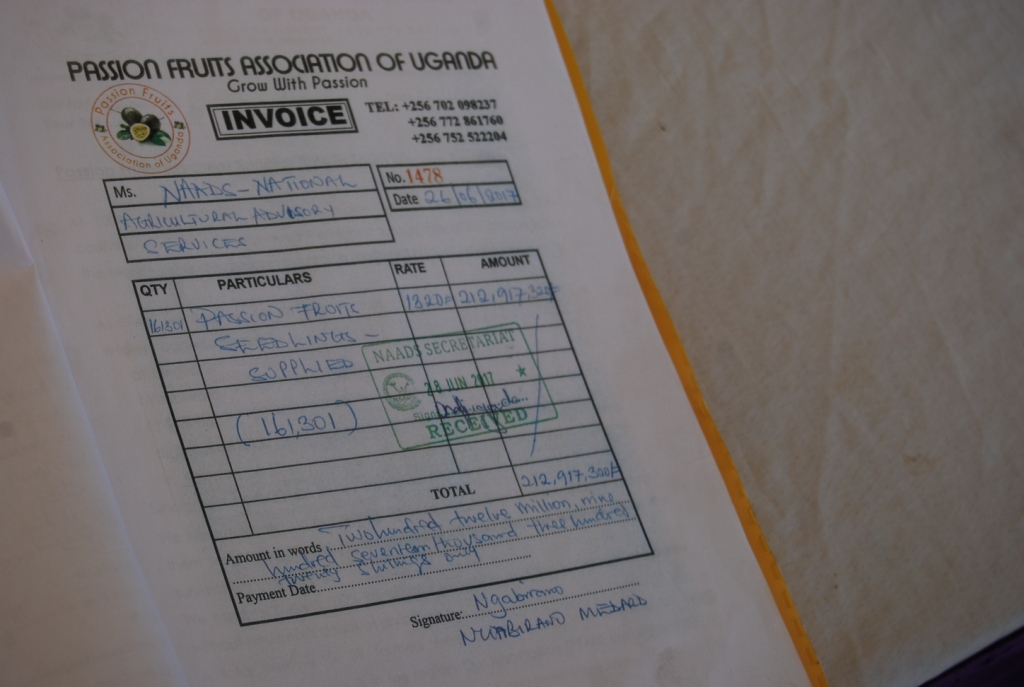 PASSION FRUITS ASSOCIATION OF UGANDA
Grow With Passion
Passion Fruits
Association of Uganda
INVOICE
TEL: +256 702 098237
+256 772 861760
+256 752 522204
Ms. NAADS-NATIONAL
AGRICULTURAL ADVISORY
SERVICES
No. 1478
Date 26/06/2017
QTY PARTICULARS RATE AMOUNT
161301 PASSION FRUITS 1320/= 212,917,320/=
SEEDLINGS -
SUPPLIED
(161,301)
NAADS SECRETARIAT
28 JUN 2017
Sign
RECEIVED
TOTAL 212,917,320/=
Amount in words Two hundred twelve million, nine
hundred seventeen thousand three hundred
twenty shillings only
Payment Date
Signature: Ngabirano
NGABIRANO MEDARD